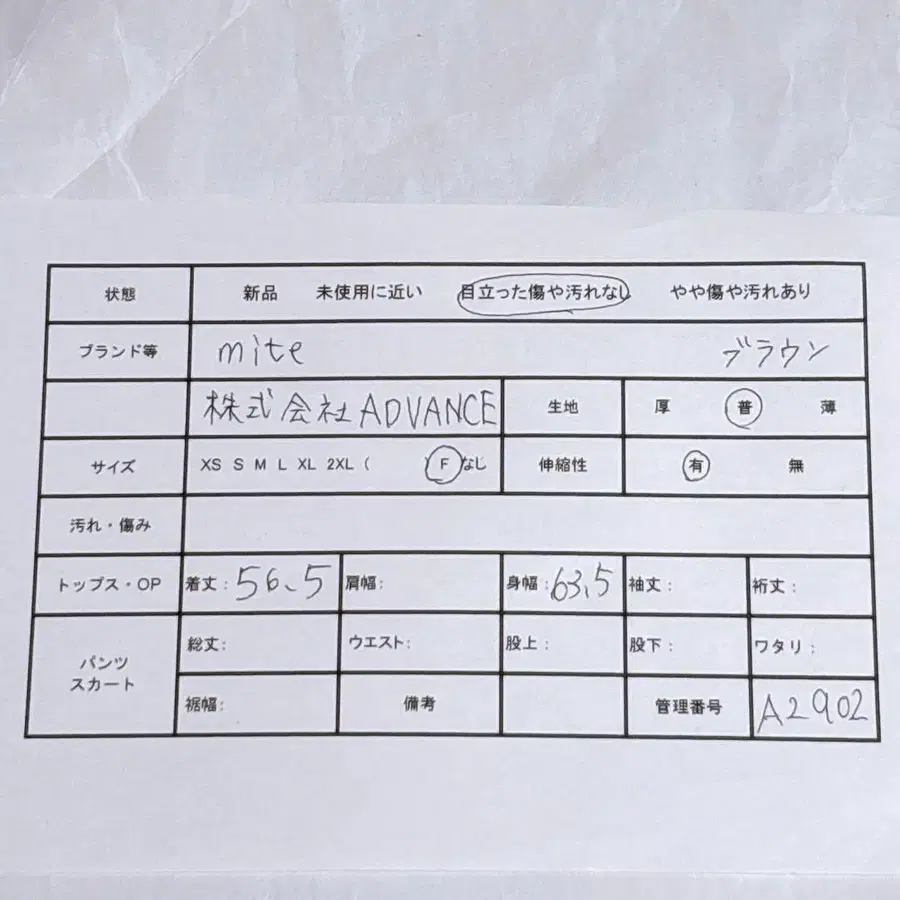 状態 新品 未使用に近い 目立った傷や汚れなし やや傷や汚れあり
ブランド等 mite ブラウン
株式会社ADVANCE 生地 厚 普 薄
サイズ XS S M L XL 2XL ( F なし 伸縮性 有 無
汚れ・傷み
トップス・OP 着丈: 56.5 肩幅: 身幅: 63.5 袖丈: 裄丈:
パンツ スカート 総丈: ウエスト: 股上: 股下: ワタリ:
裾幅: 備考 管理番号 A2902